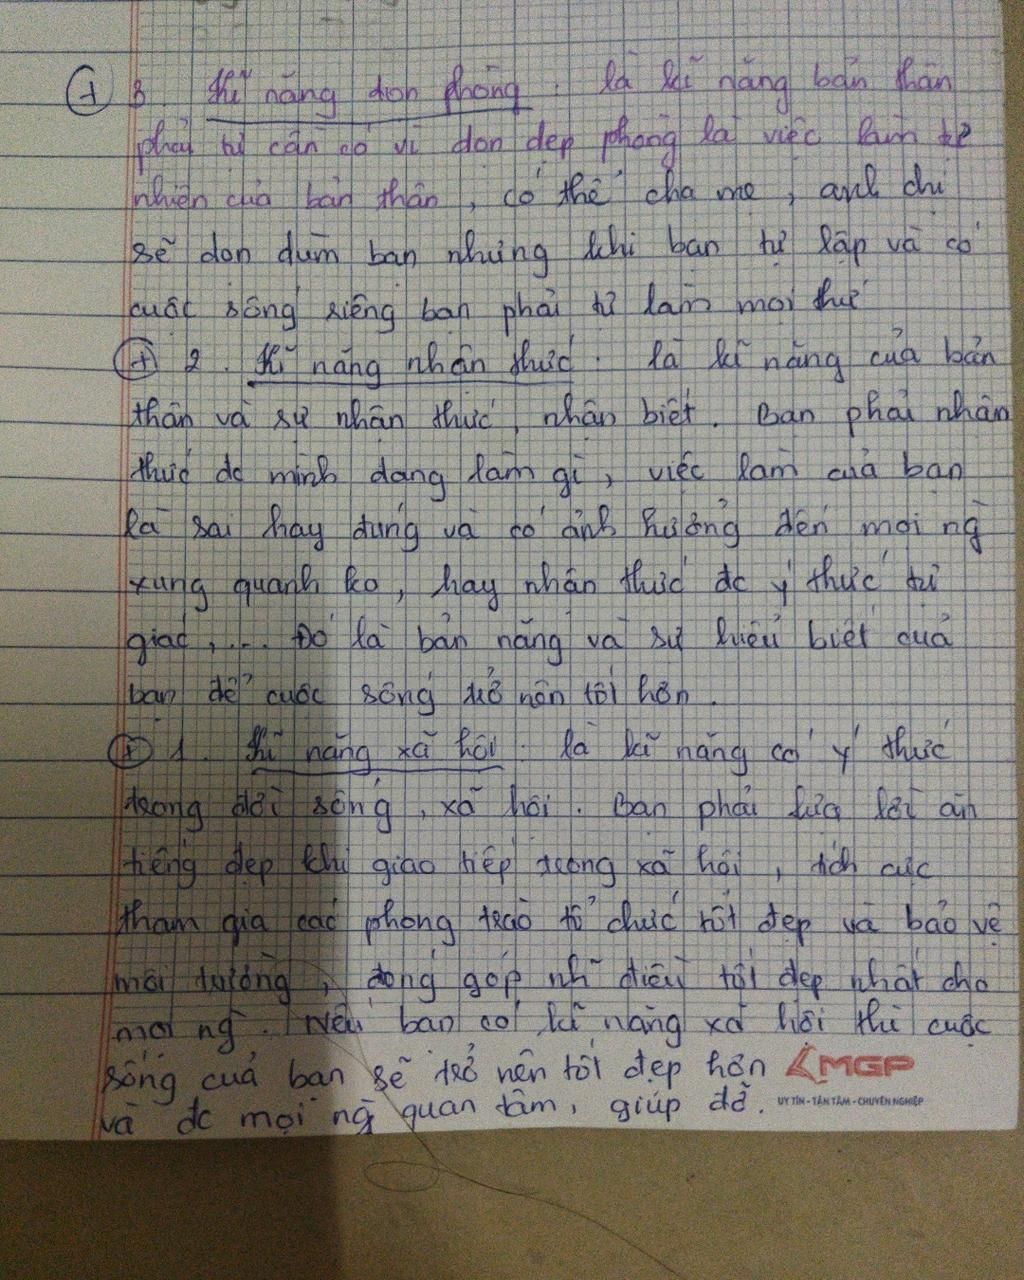 + 3. Kĩ năng dọn phòng : là kĩ năng bản thân
phải tự cần có vì dọn dẹp phòng là việc làm tự
nhiên của bản thân, có thể cha mẹ, anh chị
sẽ dọn dùm bạn nhưng khi bạn tự lập và có
cuộc sống riêng bạn phải tự làm mọi thứ
+ 2. Kĩ năng nhận thức : là kĩ năng của bản
thân và sự nhận thức, nhận biết. Bạn phải nhận
thức đc mình đang làm gì, việc làm của bạn
là sai hay đúng và có ảnh hưởng đến mọi ng
xung quanh ko, hay nhận thức đc ý thức tự
giác,... Đó là bản năng và sự hiểu biết của
bạn để cuộc sống trở nên tốt hơn.
+ 1. Kĩ năng xã hội : là kĩ năng có ý thức
trong đời sống, xã hội. Bạn phải lựa lời ăn
tiếng đẹp khi giao tiếp trong xã hội, tích cực
tham gia các phong trào tổ chức tốt đẹp và bảo vệ
môi trường, đóng góp nh~ điều tốt đẹp nhất cho
mọi ng. Nếu bạn có kĩ năng xã hội thì cuộc
sống của bạn sẽ trở nên tốt đẹp hơn
và đc mọi ng quan tâm, giúp đỡ.
MGP
UY TÍN - TẬN TÂM - CHUYÊN NGHIỆP